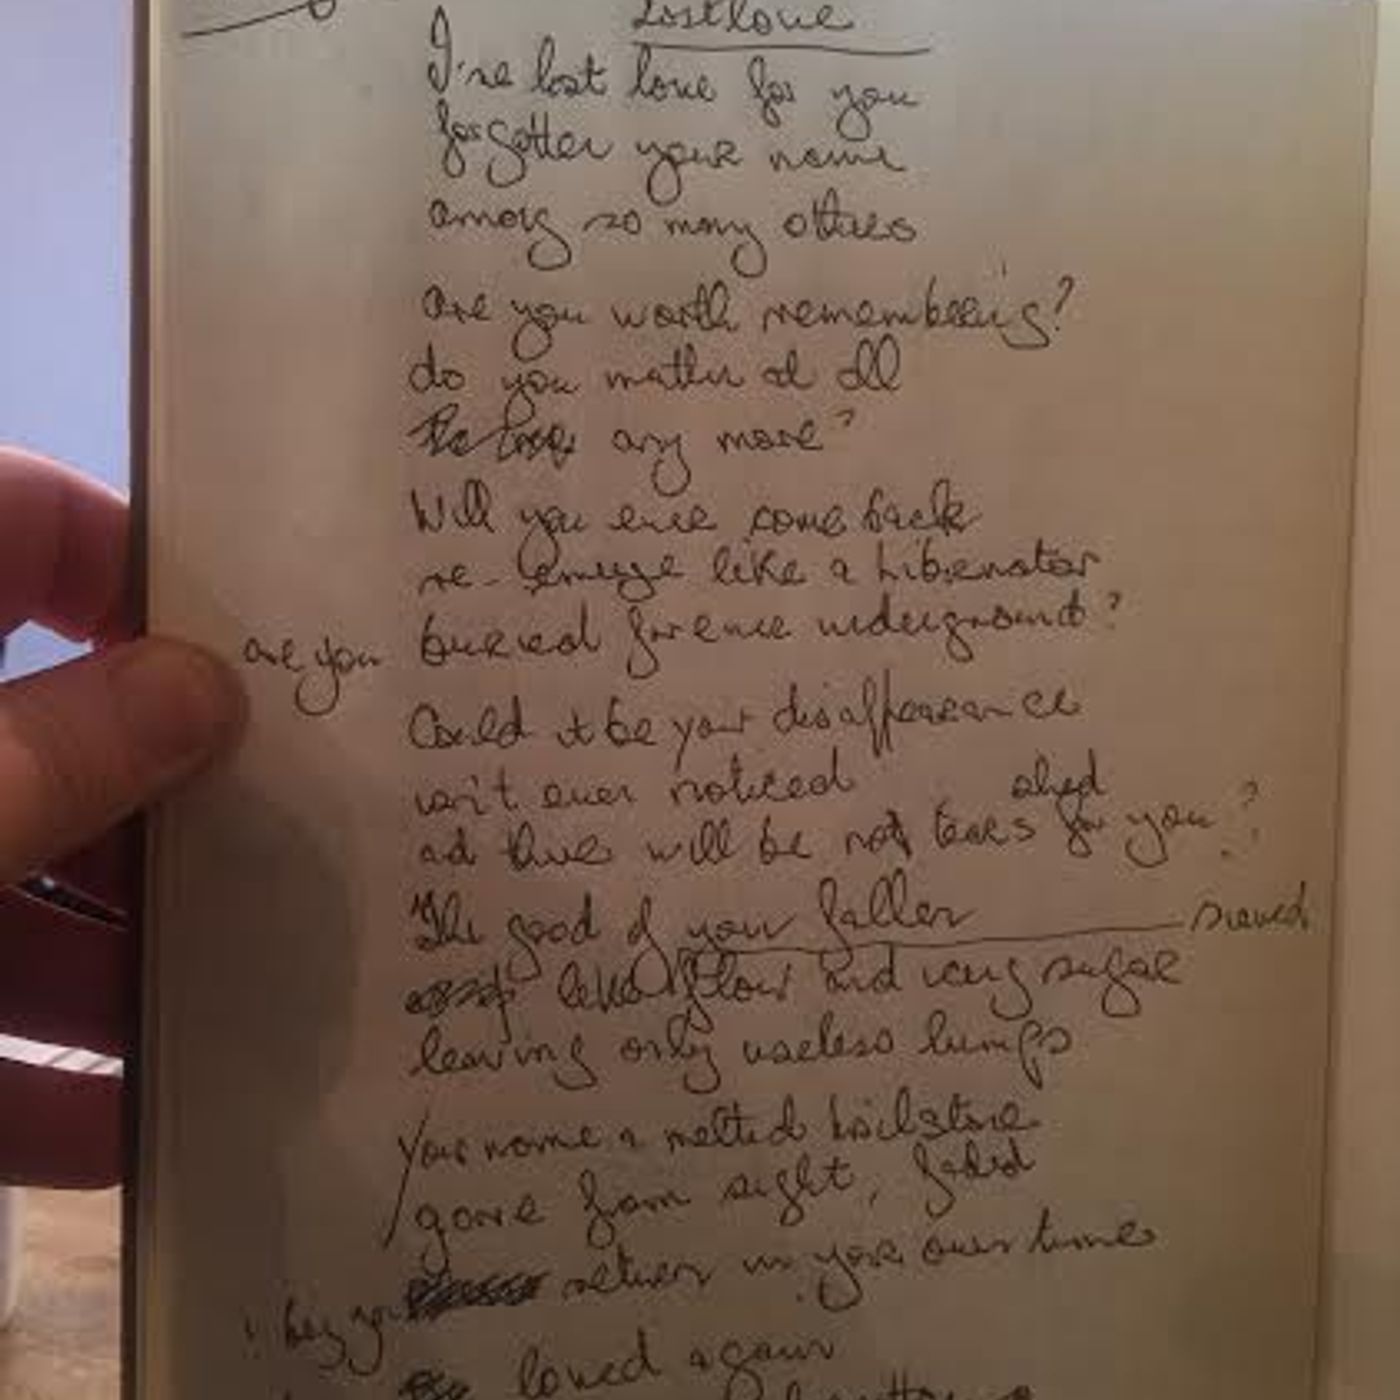 Lost love
I've lost love for you
forgotten your name
among so many others
are you worth remembering?
do you matter at all
any more?
Will you ever come back
re-emerge like a hibernator
are you buried forever underground?
Could it be your disappearance
isn't even noticed
shed
and there will be not tears for you?
The good of your fallen sieved
like flour and icing sugar
leaving only useless lumps
Your name a melted hailstone
gone from sight, faded
I beg you return in your own time
loved again